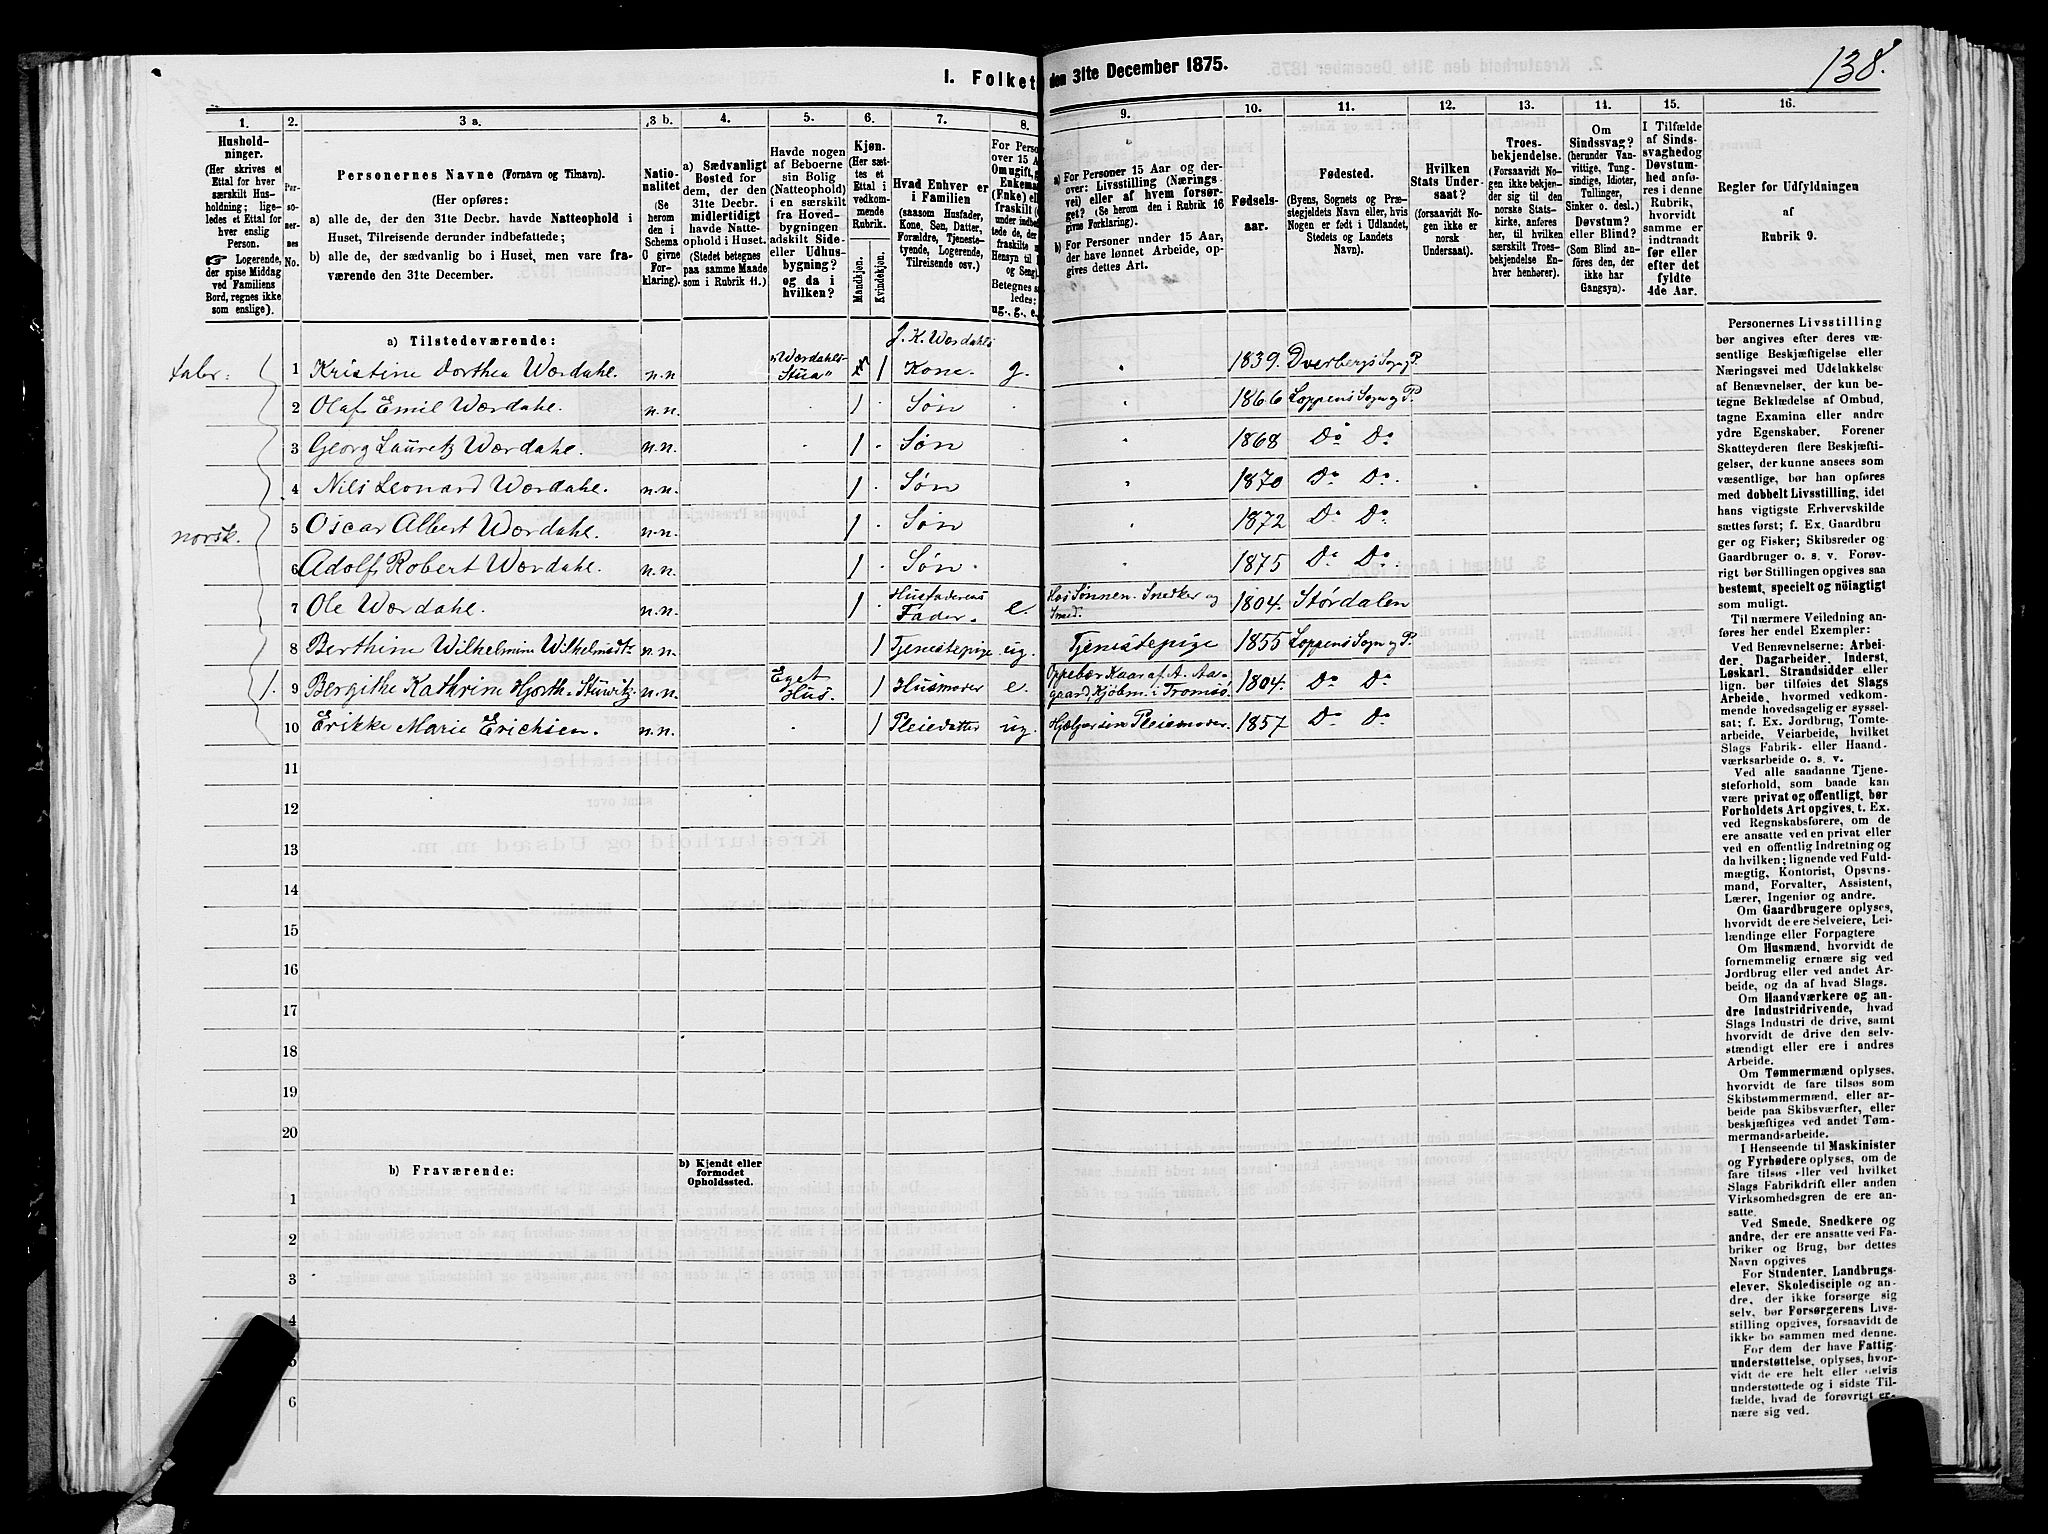 138.
I. Folket
den 31te December 1875.
1.
Hushold-
ninger.
(Her skrives et
Ettal for hver
særskilt Hus-
holdning; lige-
ledes et Ettal for
hver enslig
Person.
☞ Logerende,
der spise Middag
ved Familiens
Bord, regnes ikke
som enslige).
2.
Per-
soner-
nes
No.
3 a.
Personernes Navne (Fornavn og Tilnavn).
(Her opføres:
a) alle de, der den 31te Decbr. havde Natteophold i
Huset, Tilreisende derunder indbefattede;
b) alle de, der sædvanlig bo i Huset, men vare fra-
værende den 31te December.
3 b.
Natio-
nalitet
(Se
herom
den i
Schema
O givne
For-
klaring).
4.
a) Sædvanligt
Bosted for
dem, der den
31te Decbr.
midlertidigt
havde Natte-
ophold i Huset.
(Stedet betegnes
paa samme Maade
som i Rubrik 11.)
5.
Havde nogen
af Beboerne
sin Bolig
(Natteophold)
i en særskilt
fra Hoved-
bygningen
adskilt Side-
eller Udhus-
bygning?
og da i
hvilken?
6.
Kjøn.
(Her sæt-
tes et
Ettal i
vedkom-
mende
Rubrik.
Mandkjøn.
Kvindekjøn.
7.
Hvad Enhver er
i Familien
(saasom Husfader,
Kone, Søn, Datter,
Forældre, Tjeneste-
tyende, Logerende,
Tilreisende osv.)
8.
For Perso
over 15 A
Om ugift, g
Enkema
(Enke) elle
fraskilt (
under indbe
tede de, de
fraskilte m
Hensyn til
og Seng)
Betegnes s
ledes:
ug., g., e.
9.
a) For Personer 15 Aar og der-
over: Livsstilling (Nærings-
vei) eller af hvem forsør-
get? (Se herom den i Rubrik 16
givne Forklaring).
b) For Personer under 15 Aar,
der have lønnet Arbeide, op-
gives dettes Art.
10.
Fødsels-
aar.
11.
Fødested.
(Byens, Sognets og Præ-
stegjeldets Navn eller, hvis
Nogen er født i Udlandet,
Stedets og Landets
Navn).
12.
Hvilken
Stats Under-
saat?
(forsaavidt No-
gen ikke er
norsk
Undersaat).
13.
Troes-
bekjendelse.
(Forsaavidt No-
gen ikke bekjen-
der sig til den
norske Stats-
kirke, anføres
her, til hvilken
særskilt Troes-
bekjendelse En-
hver henhører).
14.
Om
Sindssvag?
(herunder Van-
vittige, Tung-
sindige, Idioter,
Tullinger,
Sinker o. desl.)
Døvstum?
eller Blind?
(Som Blind an-
føres den, der
ikke har
Gangsyn).
15.
I Tilfælde
af Sinds-
svaghed og
Døvstum-
hed anfø-
res i denne
Rubrik,
hvorvidt
samme er
indtraadt
før eller
efter det
fyldte
4de Aar.
16.
Regler for Udfyldningen
af
Rubrik 9.
a) Tilstedeværende: J. K. Wærdahls
taler: 1 Kristine Dorthea Wærdahl. n.n "Wærdahls-Stua" 1 Kone. g. " 1839. Dverbergs Sogn og P.
2 Olaf Emil Wærdahl. n.n. 1 Søn " 1866 Loppens Sogn og P.
3 Georg Lauretz Wærdahl. n.n. 1 Søn " 1868 Do Do
4 Nils Leonard Wærdahl. n.n. 1 Søn " 1870 Do Do.
norsk. 5 Oscar Albert Wærdahl. n.n. 1 Søn " 1872 Do Do
6 Adolf Robert Wærdahl. n.n. 1 Søn. " 1875 Do Do
7 Ole Wærdahl. n.n. 1 Husfaderens Fader. e. Hos Sønnen. Snedker og Smed. 1804. Størdalen
8 Berthine Wilhelmine Wilhelmsdtr n.n. 1 Tjenestepige ug. Tjenestepige 1855 Loppens Sogn og P.
1. 9 Bergithe Kathrine Hjorth Stuwitz n.n. Eget Hus. 1 Husmoder e. Oppebær Kaar af A. Aagaard, Kjøbm. i Tromsø. 1804. Do Do
10 Erikke Marie Erichsen. n.n. 1 Pleiedatter ug. Hjælper sin Pleiemoder. 1857 Do Do
11
12
13
14
15
16
17
18
19
20
b) Fraværende:
b) Kjendt eller
formodet
Opholdssted.
1
2
3
4
5
6
Personernes Livsstilling
bør angives efter deres væ-
sentlige Beskjæftigelse eller
Næringsvei med Udelukkelse
af Benævnelser, der kun be-
tegne Beklædelse af Ombud,
tagne Examina eller andre
ydre Egenskaber. Forener
Skatteyderen flere Beskjæfti-
gelser, der kunne ansees som
væsentlige, bør han opføres
med dobbelt Livsstilling, idet
hans vigtigste Erhvervskilde
sættes først; f. Ex. Gaardbru-
ger og Fisker; Skibsreder og
Gaardbruger o. s. v. Forøv-
rigt bør Stillingen opgives saa
bestemt, specielt og nöiagtigt
som muligt.
Til nærmere Veiledning an-
føres her endel Exempler:
Ved Benævnelserne: Arbei-
der, Dagarbeider, Inderst,
Løskarl, Strandsidder eller
lign. bør tilføies det Slags
Arbeide, hvormed vedkom-
mende hovedsagelig er syssel-
sat; f. Ex. Jordbrug, Tomte-
arbeide, Veiarbeide, hvilket
Slags Fabrik- eller Haand-
værksarbeide o. s. v.
Ved alle saadanne Tjene-
steforhold, som baade kan
være privat og offentligt, bør
Forholdets Art opgives, t. Ex.
ved Regnskabsførere, om de
ere ansatte ved en privat eller
ved en offentlig Indretning og
da hvilken; lignende ved Fuld-
mægtig, Kontorist, Opsyns-
mand, Forvalter, Assistent,
Lærer, Ingeniør og andre.
Om Gaardbrugere oplyses,
hvorvidt de ere Selveiere, Lei-
lændinge eller Forpagtere
Om Husmænd, hvorvidt de
fornemmelig ernære sig ved
Jordbrug eller ved andet Ar-
beide, og da af hvad Slags.
Om Haandværkere og an-
dre Industridrivende, hvad
Slags Industri de drive, samt
hvorvidt de drive den selv-
stændigt eller ere i andres
Arbeide.
Om Tømmermænd oplyses,
hvorvidt de fare tilsøs som
Skibstømmermænd, eller ar-
beide paa Skibsværfter, eller
beskjæftiges ved andet Tøm-
mermandsarbeide.
I Henseende til Maskinister
og Fyrbødere oplyses, om de
fare tilsøs eller ved hvilket
Slags Fabrikdrift eller anden
Virksomhedsgren de ere an-
satte.
Ved Smede, Snedkere og
andre, der ere ansatte ved Fa-
briker og Brug, bør dettes
Navn opgives
For Studenter, Landbrugs-
elever, Skoledisciple og an-
dre, der ikke forsørge sig
selv, bør Forsørgerens Livs-
stilling opgives, forsaavidt de
ikke bo sammen med denne.
For dem, der have Fattig-
understøttelse, oplyses, hvor-
vidt de ere helt eller delvis
understøttede og i sidste Til-
fælde, hvad de forøvrigt er-
nære sig ved.